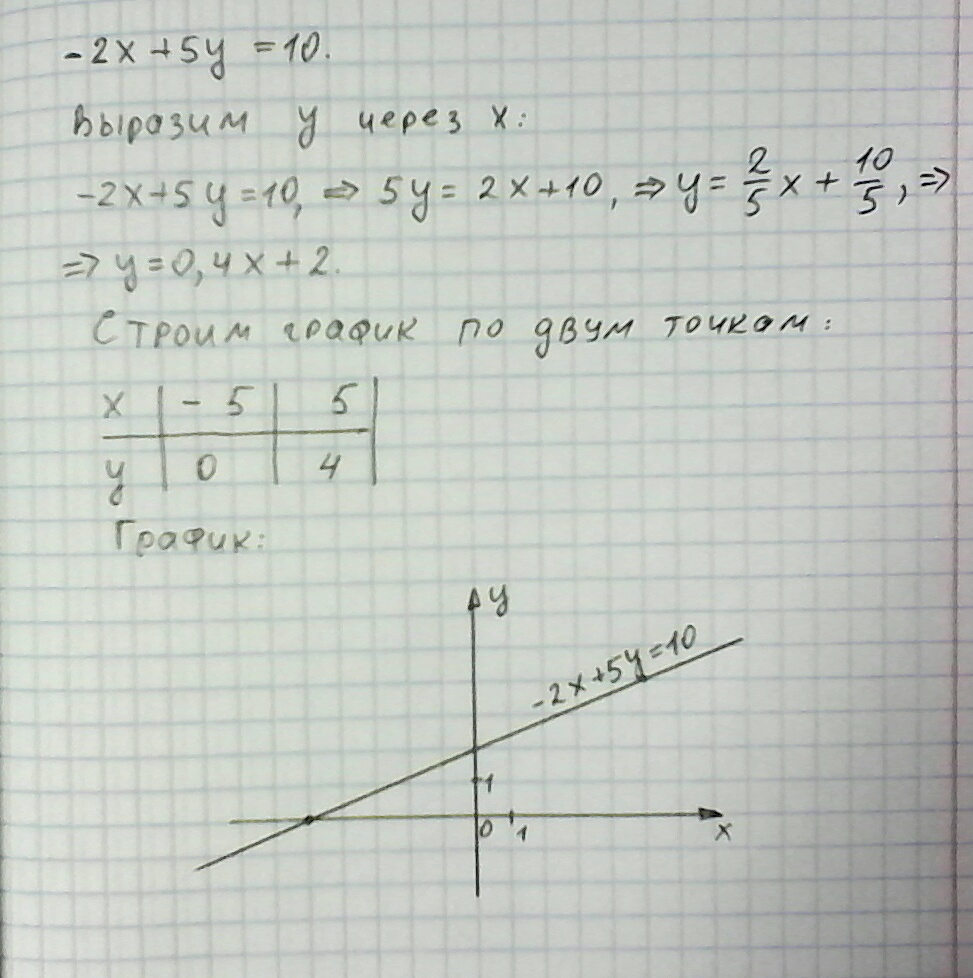 -2x+5y=10.
Выразим y через x:
-2x+5y=10, ⇒ 5y=2x+10, ⇒ y=2/5x+10/5, ⇒
⇒ y=0,4x+2.
Строим график по двум точкам:
x | -5 | 5 |
y | 0 | 4 |
График:
y
-2x+5y=10
1
0 1 x